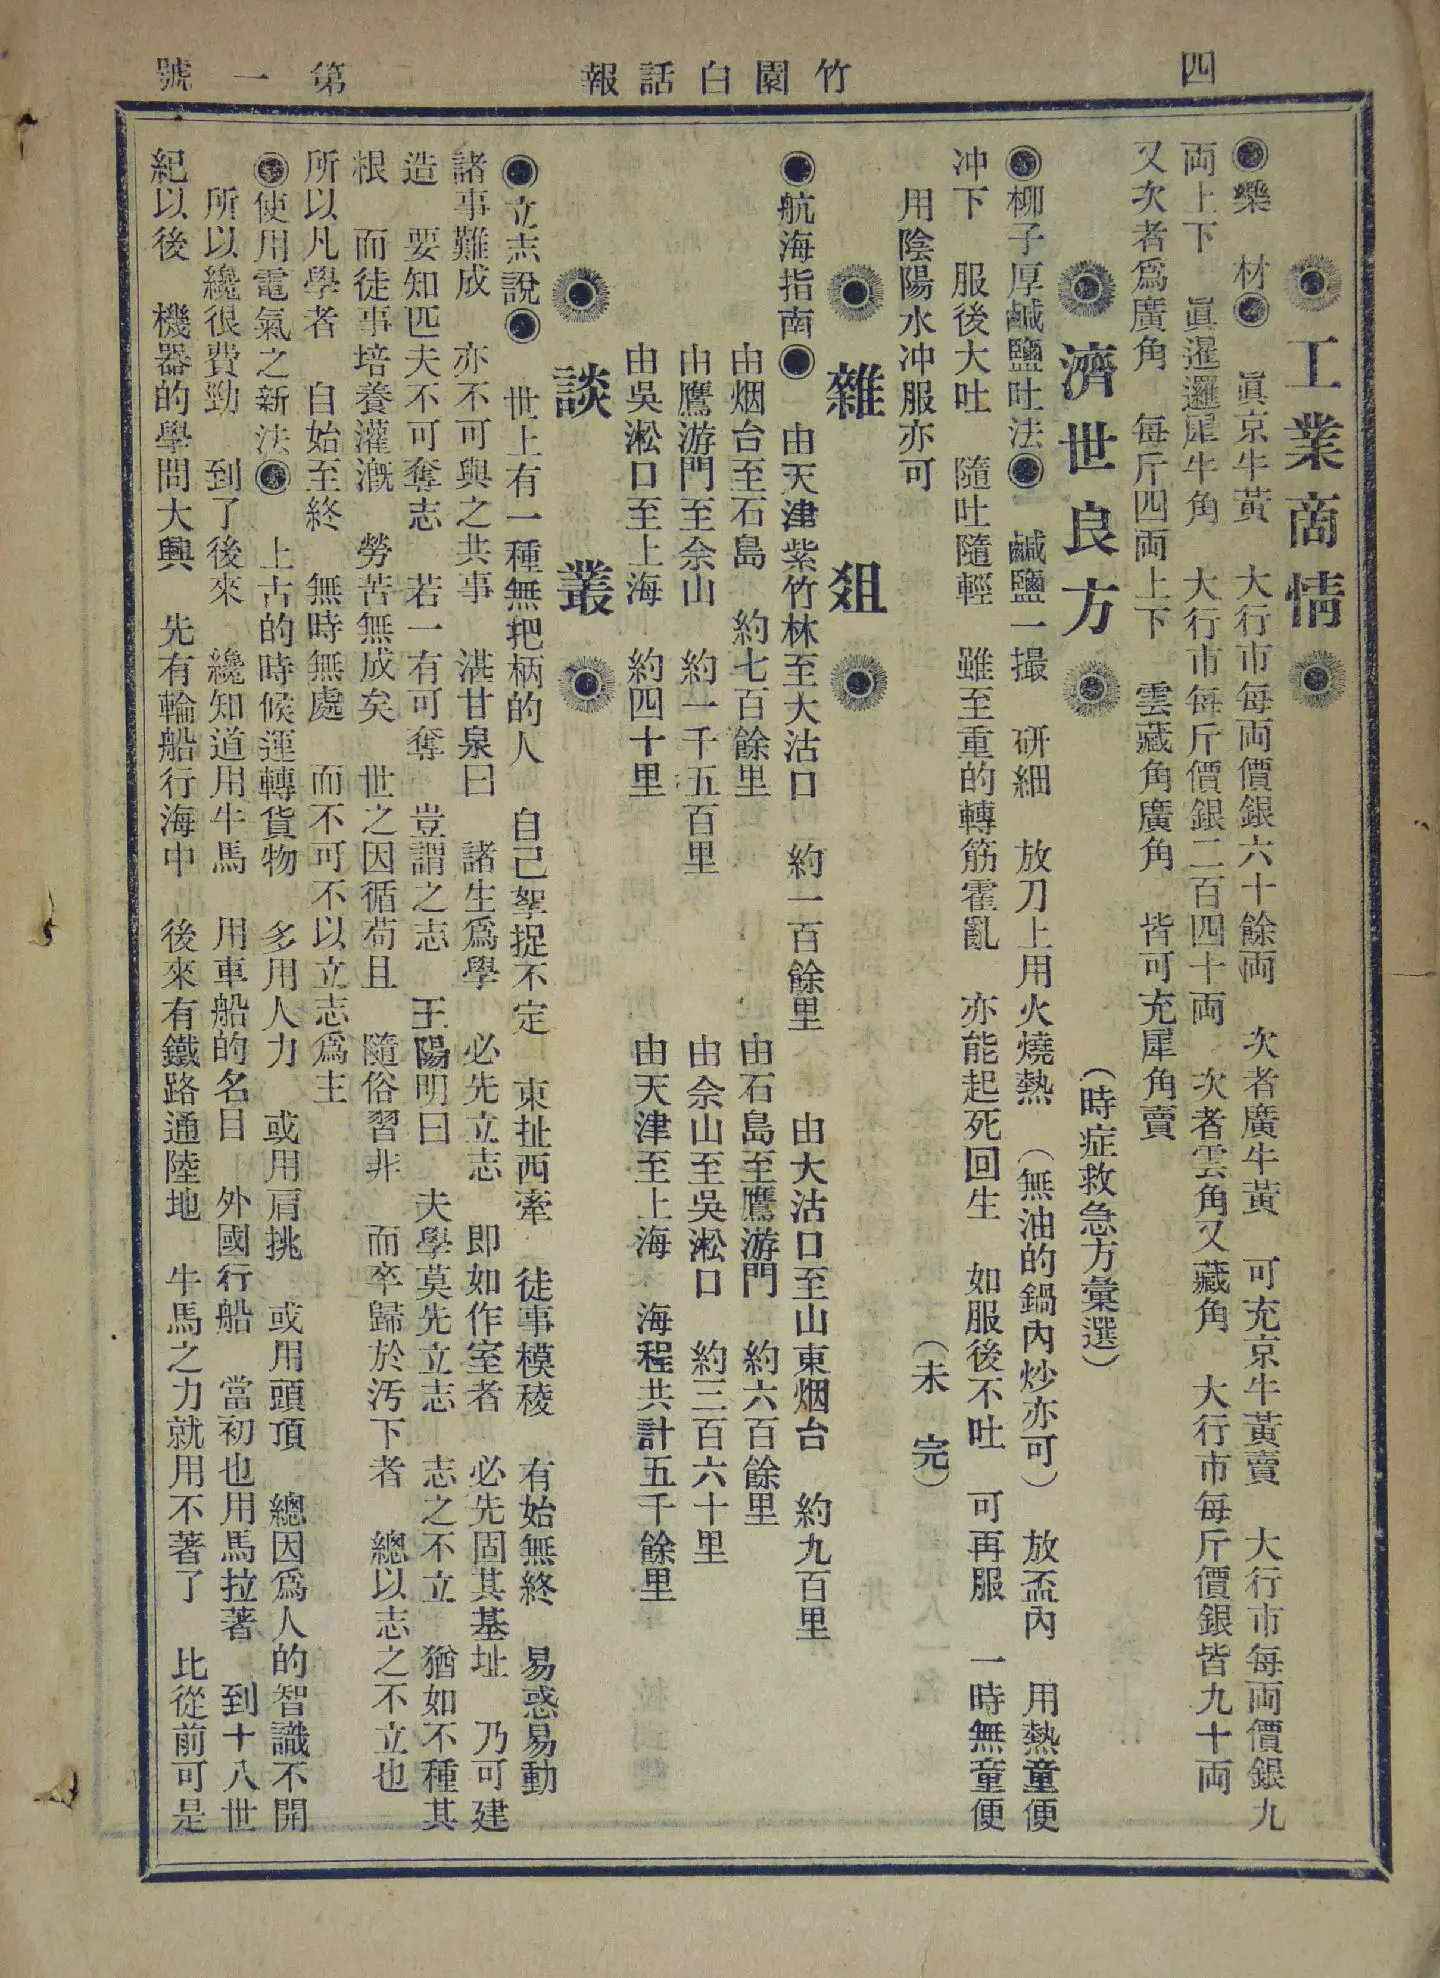 四
竹園白話報
第一號
工業商情
●藥材● 眞京牛黃 大行市每両價銀六十餘両 次者廣牛黃 可充京牛黃賣 大行市每両價銀九
両上下 眞暹邏犀牛角 大行市每斤價銀二百四十両 次者雲角又藏角 大行市每斤價銀皆九十両
又次者爲廣角 每斤四両上下 雲藏角廣角 皆可充犀角賣
濟世良方 (時症救急方彙選)
●柳子厚鹹鹽吐法● 鹹鹽一撮 研細 放刀上用火燒熱 (無油的鍋內炒亦可) 放盃內 用熱童便
冲下 服後大吐 隨吐隨輕 雖至重的轉筋霍亂 亦能起死回生 如服後不吐 可再服 一時無童便
用陰陽水冲服亦可 (未完)
雜爼
●航海指南● 由天津紫竹林至大沽口 約一百餘里 由大沽口至山東烟台 約九百里
由烟台至石島 約七百餘里 由石島至鷹游門 約六百餘里
由鷹游門至佘山 約一千五百里 由佘山至吳淞口 約三百六十里
由吳淞口至上海 約四十里 由天津至上海 海程共計五千餘里
談叢
●立志說● 世上有一種無把柄的人 自己拏捉不定 東扯西牽 徒事模稜 有始無終 易惑易動
諸事難成 亦不可與之共事 湛甘泉曰 諸生爲學 必先立志 即如作室者 必先固其基址 乃可建
造 要知匹夫不可奪志 若一有可奪 豈謂之志 王陽明曰 夫學莫先立志 志之不立 猶如不種其
根 而徒事培養灌漑 勞苦無成矣 世之因循苟且 隨俗習非 而卒歸於汚下者 總以志之不立也
所以凡學者 自始至終 無時無處 而不可不以立志爲主
●使用電氣之新法● 上古的時候運轉貨物 多用人力 或用肩挑 或用頭頂 總因爲人的智識不開
所以纔很費勁 到了後來 纔知道用牛馬 用車船的名目 外國行船 當初也用馬拉著 到十八世
紀以後 機器的學問大興 先有輪船行海中 後來有鐵路通陸地 牛馬之力就用不著了 比從前可是